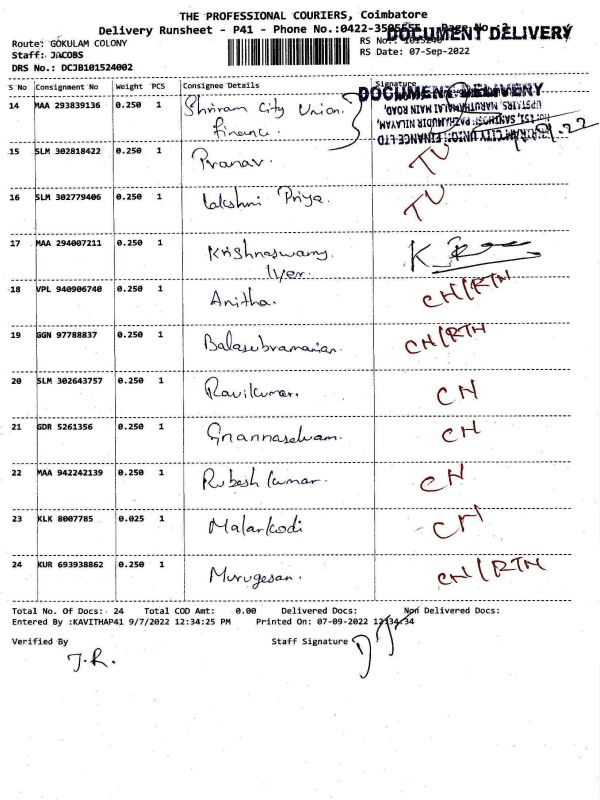 THE PROFESSIONAL COURIERS, Coimbatore
Delivery Runsheet - P41 - Phone No.:0422-
DOCUMENT DELIVERY
Route: GOKULAM COLONY
RS No.:
Staff: JACOBS
RS Date: 07-Sep-2022
DRS No.: DCJB101524002
S No Consignment No Weight PCS Consignee Details Signature
DOCUMENT DELIVERY
14 MAA 293839136 0.250 1 Shriram City Union.
Finance.
UPSTAIRS, MARUTHAMALAI MAIN ROAD,
SHRIRAM CITY UNION FINANCE LTD
15 SLM 302818422 0.250 1 Pranav. TU
16 SLM 302779406 0.250 1 Lakshmi Priya. TU
17 MAA 294007211 0.250 1 Krishnaswamy.
Iyer.
18 VPL 940906740 0.250 1 Anitha. CN/RTN
19 GGN 97788837 0.250 1 Balasubramanian. CN/RTN
20 SLM 302643757 0.250 1 Ravikumar. CN
21 GDR 5261356 0.250 1 Gnannaselvam. CN
22 MAA 942242139 0.250 1 Rubesh Kumar. CN
23 KLK 8007785 0.025 1 Malarkodi CN
24 KUR 693938862 0.250 1 Murugesan. CN/RTN
Total No. Of Docs:- 24 Total COD Amt: 0.00 Delivered Docs: Non Delivered Docs:
Entered By :KAVITHAP41 9/7/2022 12:34:25 PM Printed On: 07-09-2022 12:34:34
Verified By Staff Signature
J.R.